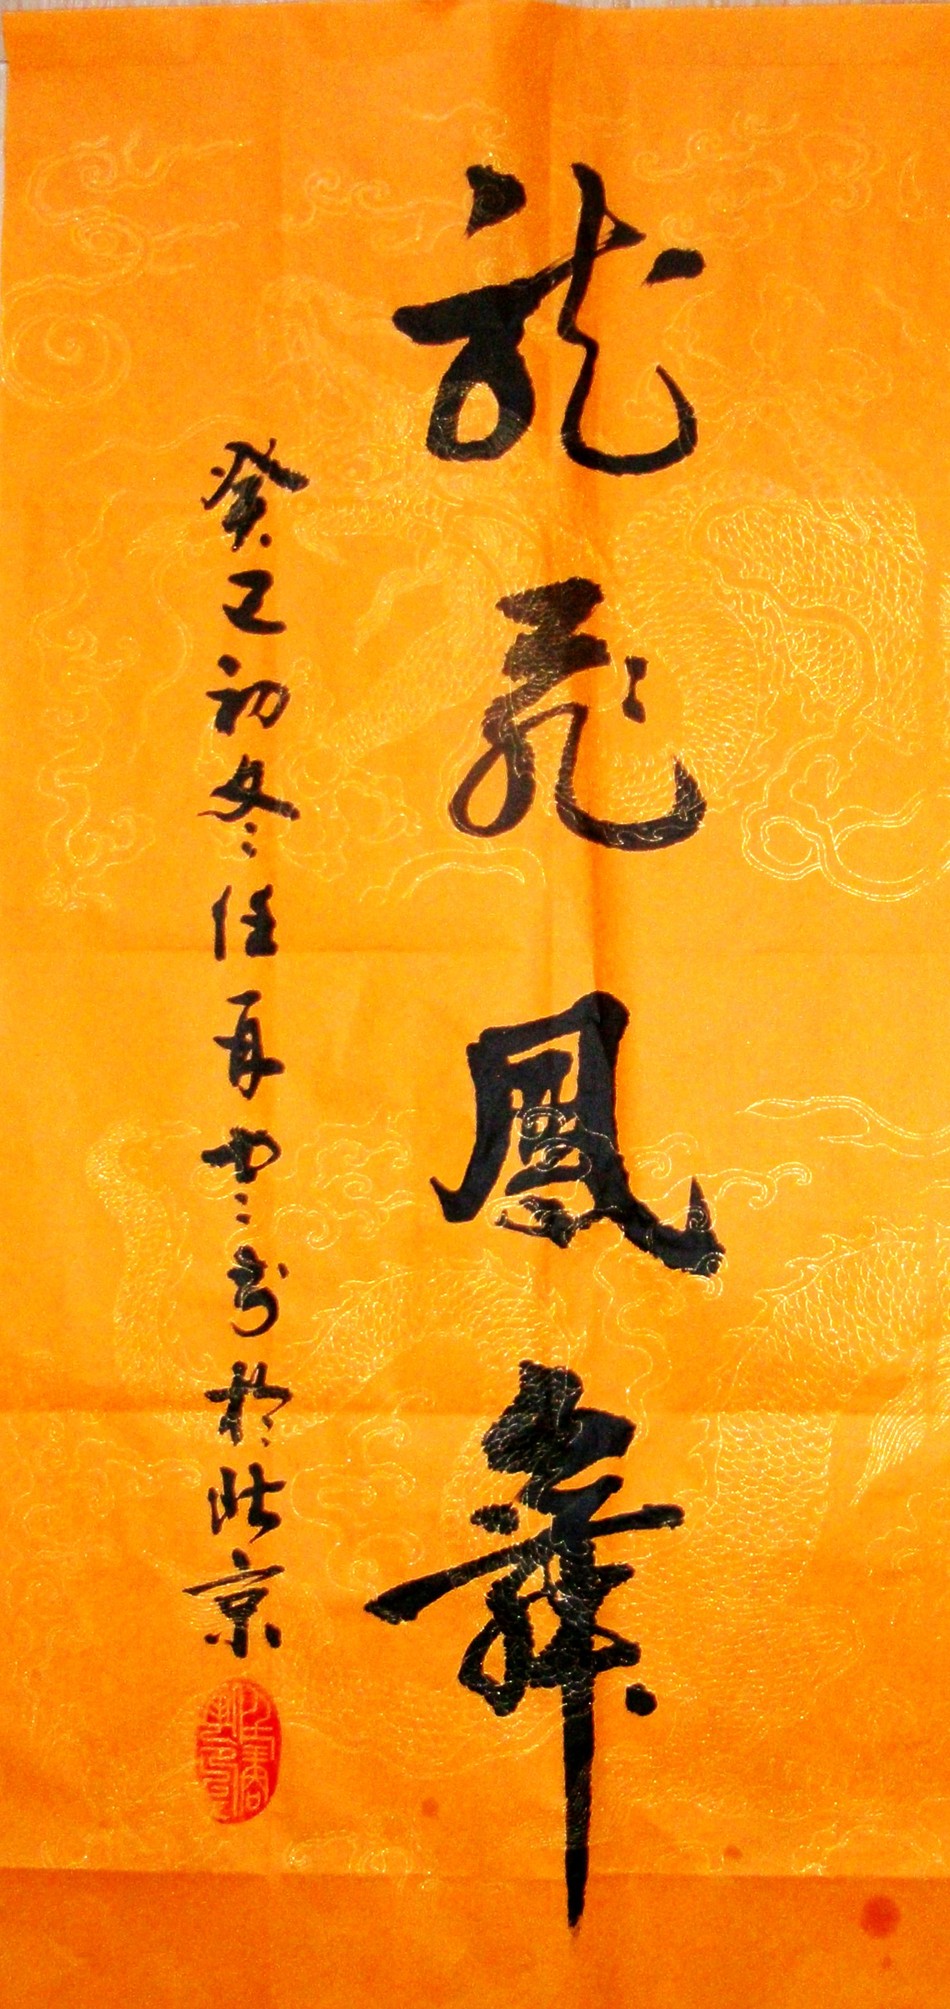 龍飛鳳舞
癸巳初冬佳再雲书於北京